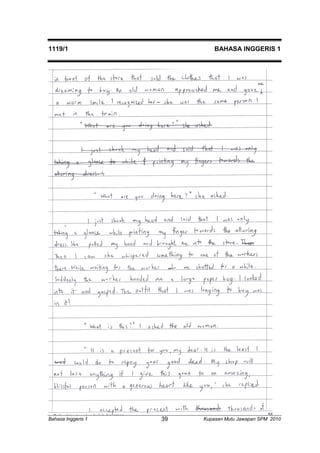 1119/1 BAHASA INGGERIS 1
in front of the store that sold the clothes that I was
dreaming to buy. An old woman approached me and gave me
a warm smile. I recognized her – she was the same person I
met in the train.
"What are you doing here?" she asked.
I just shook my head and said that I was only
taking a glance while I pointing my fingers towards the
alluring dresses.
"What are you doing here?" she asked.
I just shook my head and said that I was only
taking a glance while pointing my finger towards the alluring
dress. She pated my hand and brought me into the store. Then
Then I saw she whispered something to one of the workers
there. While waiting for the worker, we chatted for a while.
Suddenly the worker handed me a large paper bag. I looked
into it and gasped. The outfit that I was longing to buy was
in it!
"What is this?" I asked the old woman.
"It is a present for you, my dear. It is the least I
could do to repay your good deed. My shop will
not loss anything if I give this gown to an amazing,
blissful person with a generous heart like you," she replied.
I accepted the present with thousands thousands of
Bahasa Inggeris 1 39 Kupasan Mutu Jawapan SPM 2010